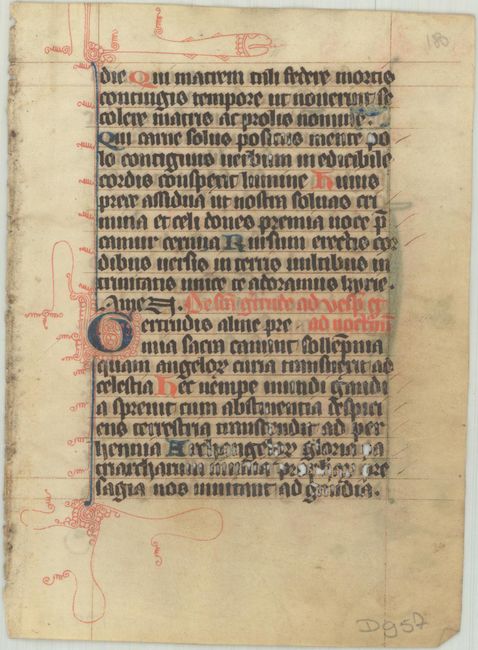 180
die Qui matrem tristi federe mortis
contingis tempore ut noverunt se
colere matris ac prolis nomine.
Qui carne solus positus mente po
lo contiguus verbum ineducibile
cordis conspexit lumine Huius
prece assidua ut nostra soluas cri
mina et celi dones premia voce p̄
camur cernua Rursum erectis cor
dibus versis in terris vultibus in
trinitatis unice te adoramus kyrie.
Amen. De sca gertrude ad vesp et
Gertrudis alme pre ad noctur
mia sacra canunt sollempnia
quam angelor curia transuexit ad
celestia Hec nempe mundi gaudi
a spreuit cum abstinentia despici
ens terrestria transcendit ad per
hennia Archangelor gloria pa
triarcharum prophetar pre
sagia nos inuitant ad gaudia.
D957